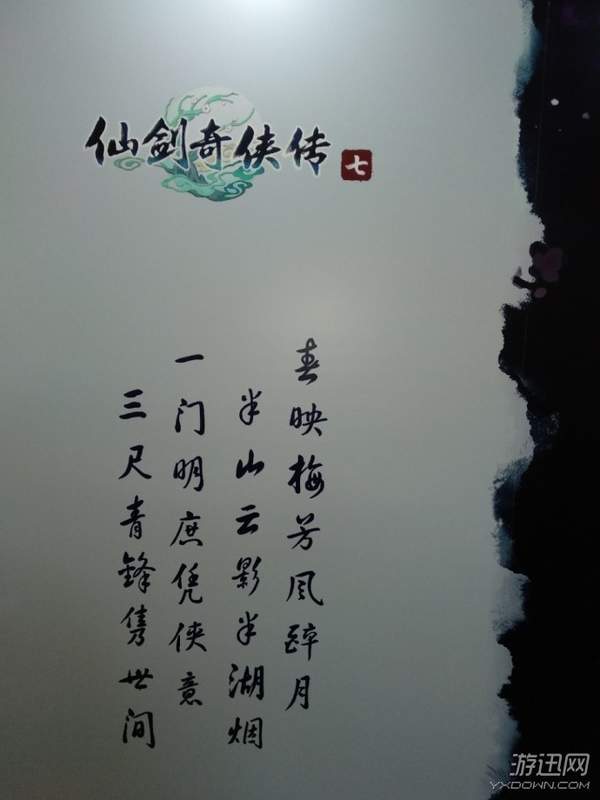 仙剑奇侠传七
春映梅芳风醉月
半山云影半湖烟
一门明庶凭侠意
三尺青锋隽世间
游迅网
YXDOWN.COM